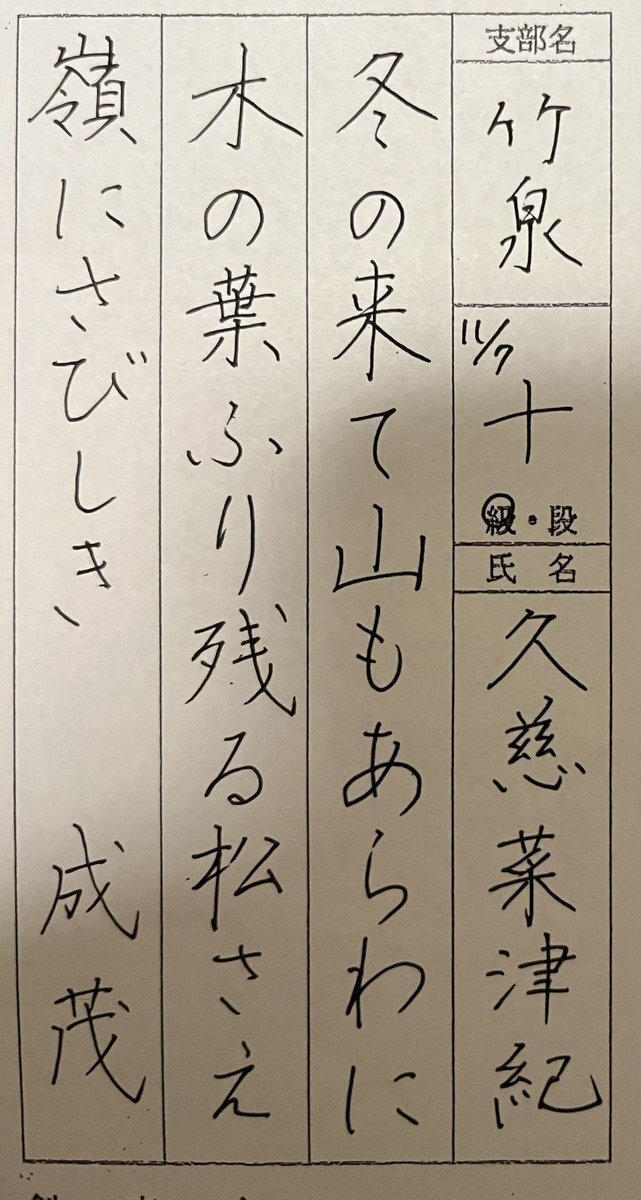 支部名
竹泉
11/7
十
級・段
氏名
久慈菜津紀
冬の来て山もあらわに
木の葉ふり残る松さえ
嶺にさびしき 成茂